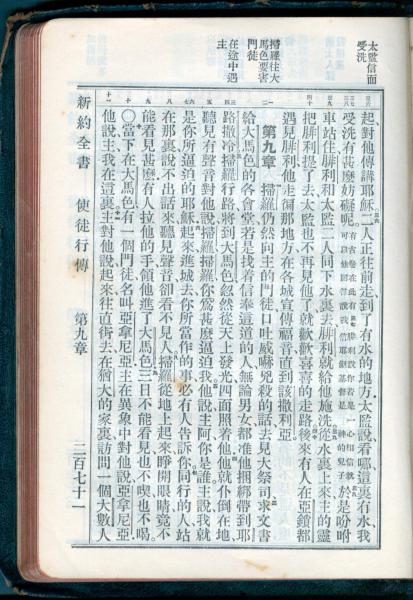 太監信而
受洗
掃羅往大
馬色要害
門徒
在途中遇
主
起對他傳講耶穌二人正往前走到了有水的地方太監說看哪這裏有水我
受洗有甚麼妨礙呢有古卷在此有腓利說你若是一心相信就可以他回答說我信耶穌基督是神的兒子於是吩咐
車站住腓利和太監二人同下水裏去腓利就給他施洗從水裏上來主的靈
把腓利提了去太監也不再見他了就歡歡喜喜的走路後來有人在亞鎖都
遇見腓利他走徧那地方在各城宣傳福音直到該撒利亞
第九章 掃羅仍然向主的門徒口吐威嚇兇殺的話去見大祭司求文書
給大馬色的各會堂若是找着信奉這道的人無論男女都准他捆綁帶到耶
路撒冷掃羅行路將到大馬色忽然從天上發光四面照着他他就仆倒在地
聽見有聲音對他說掃羅掃羅你爲甚麼逼迫我他說主阿你是誰主說我就
是你所逼迫的耶穌起來進城去你所當作的事必有人告訴你同行的人站
在那裏說不出話來聽見聲音卻看不見人掃羅從地上起來睜開眼睛竟不
能看見甚麼有人拉他的手領他進了大馬色三日不能看見也不喫也不喝
○當下在大馬色有一個門徒名叫亞拿尼亞主在異象中對他說亞拿尼亞
他說主我在這裏主對他說起來往直街去在猶大的家裏訪問一個大數人
新約全書 使徒行傳 第九章 二百七十一